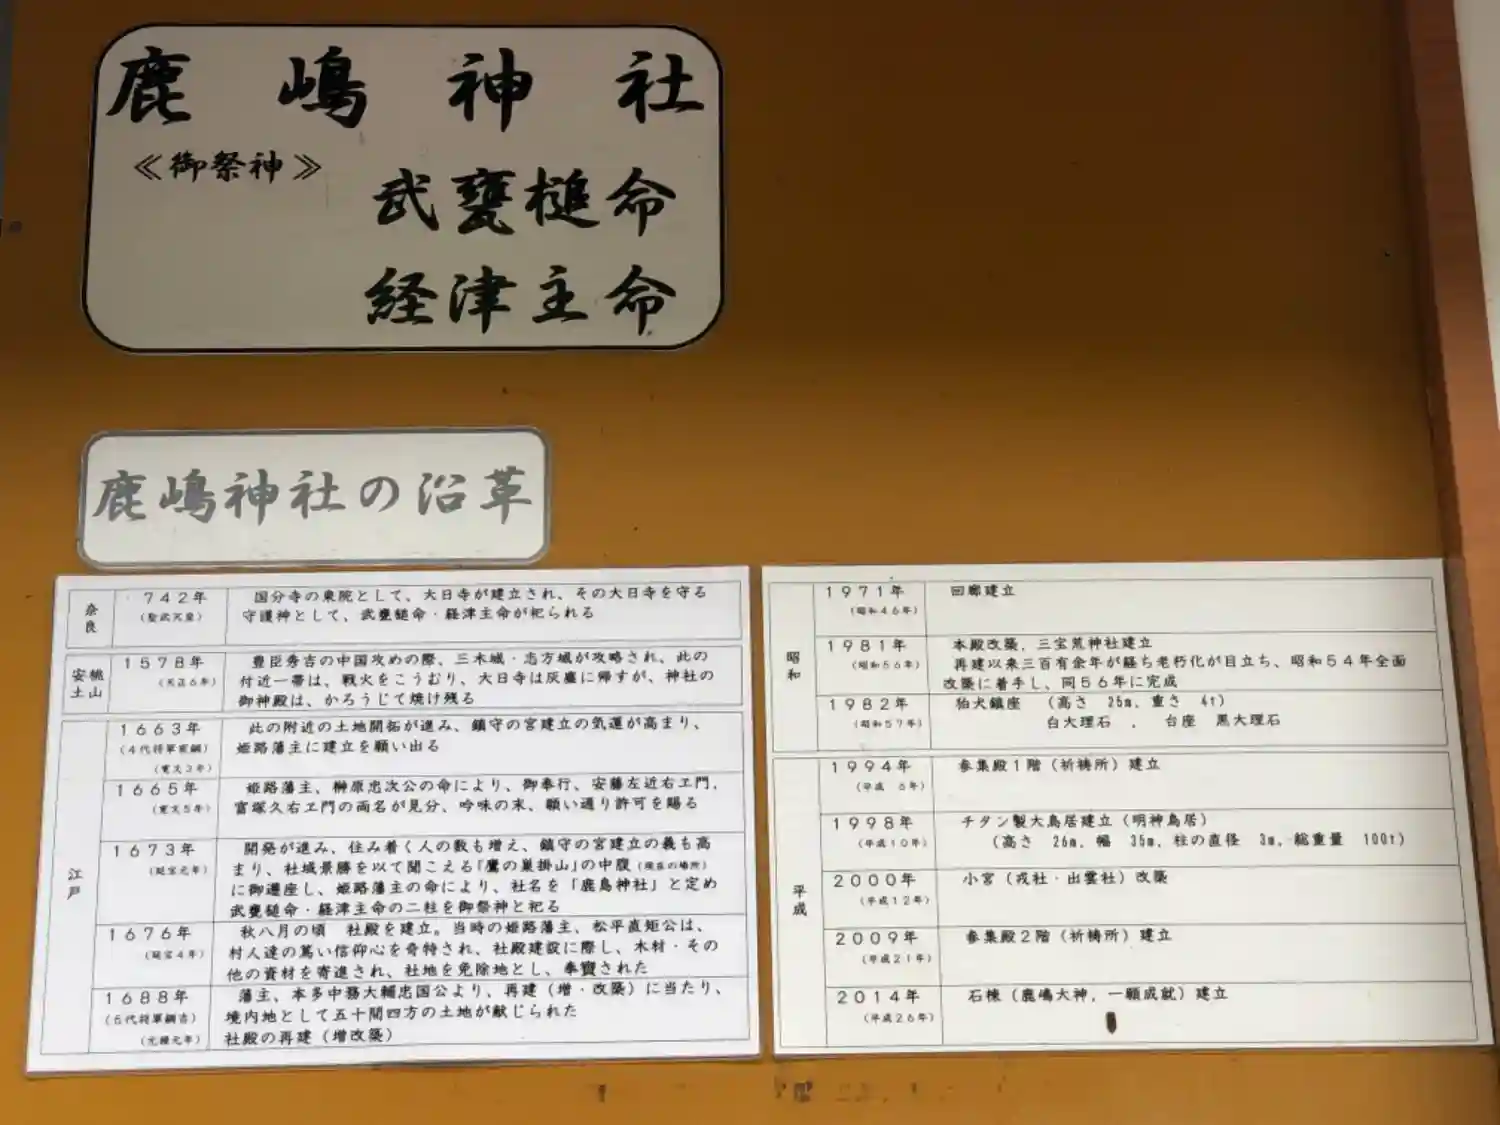 鹿嶋神社
≪御祭神≫
武甕槌命
経津主命
鹿嶋神社の沿革
奈良
742年
(聖武天皇)
国分寺の東院として、大日寺が建立され、その大日寺を守る
守護神として、武甕槌命・経津主命が祀られる
安土桃山
1578年
(天正6年)
豊臣秀吉の中国攻めの際、三木城・志方城が攻略され、此の
付近一帯は、戦火をこうむり、大日寺は灰塵に帰すが、神社の
御神殿は、かろうじて焼け残る
江戸
1663年
(4代将軍家綱)
(寛文3年)
此の附近の土地開拓が進み、鎮守の宮建立の気運が高まり、
姫路藩主に建立を願い出る
1665年
(寛文5年)
姫路藩主、榊原忠次公の命により、御奉行、安藤左近右ヱ門,
富塚久右ヱ門の両名が見分、吟味の末、願い通り許可を賜る
1673年
(延宝元年)
開発が進み、住み着く人の数も増え、鎮守の宮建立の義も高
まり、社域景勝を以て聞こえる「鷹の巣掛山」の中腹(現在の場所)
に御遷座し、姫路藩主の命により、社名を「鹿島神社」と定め
武甕槌命・経津主命の二柱を御祭神と祀る
1676年
(延宝4年)
秋八月の頃 社殿を建立。当時の姫路藩主、松平直矩公は、
村人達の篤い信仰心を奇特され、社殿建設に際し、木材・その
他の資材を寄進され、社地を免除地とし、奉寶された
1688年
(5代将軍綱吉)
(元禄元年)
藩主、本多中務大輔忠国公より、再建(増・改築)に当たり、
境内地として五十間四方の土地が献じられた
社殿の再建(増改築)
昭和
1971年
(昭和46年)
回廊建立
1981年
(昭和56年)
本殿改築, 三宝荒神社建立
再建以来三百有余年が経ち老朽化が目立ち、昭和54年全面
改築に着手し、同56年に完成
1982年
(昭和57年)
狛犬鎮座 (高さ 25m, 重さ 4t)
白大理石 , 台座 黒大理石
平成
1994年
(平成 6年)
参集殿1階(祈祷所)建立
1998年
(平成10年)
チタン製大鳥居建立(明神鳥居)
(高さ 26m, 幅 35m, 柱の直径 3m, 総重量 100t)
2000年
(平成12年)
小宮(戎社・出雲社)改築
2009年
(平成21年)
参集殿2階(祈祷所)建立
2014年
(平成26年)
石棟(鹿嶋大神, 一願成就)建立